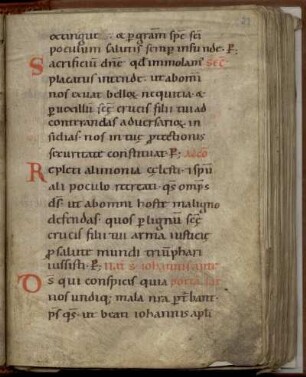 extingue & p gram sps sci
poculum salutis semp infunde. P.
Sacrificiū dñe qd immolam SEC
placatus intende. ut ab omni
nos exuat bellor nequitia. &
p uexillū sce crucis filii tui ad
conterendas aduersarior in
sidias. nos in tue protectionis
securitate constituat. P. AD CO
Repleti alimonia celesti. & spuī
ali poculo recreati. qs omps
ds. ut ab omni hoste maligno
defendas. quos p lignū sce
crucis filii tui arma iusticie
p salute mundi triumphari
iussisti. P. Nat s iohannis ante
Ds qui conspicis quia porta lat
nos undiq; mala nra ptbant.
ps qs. ut beati iohannis apli